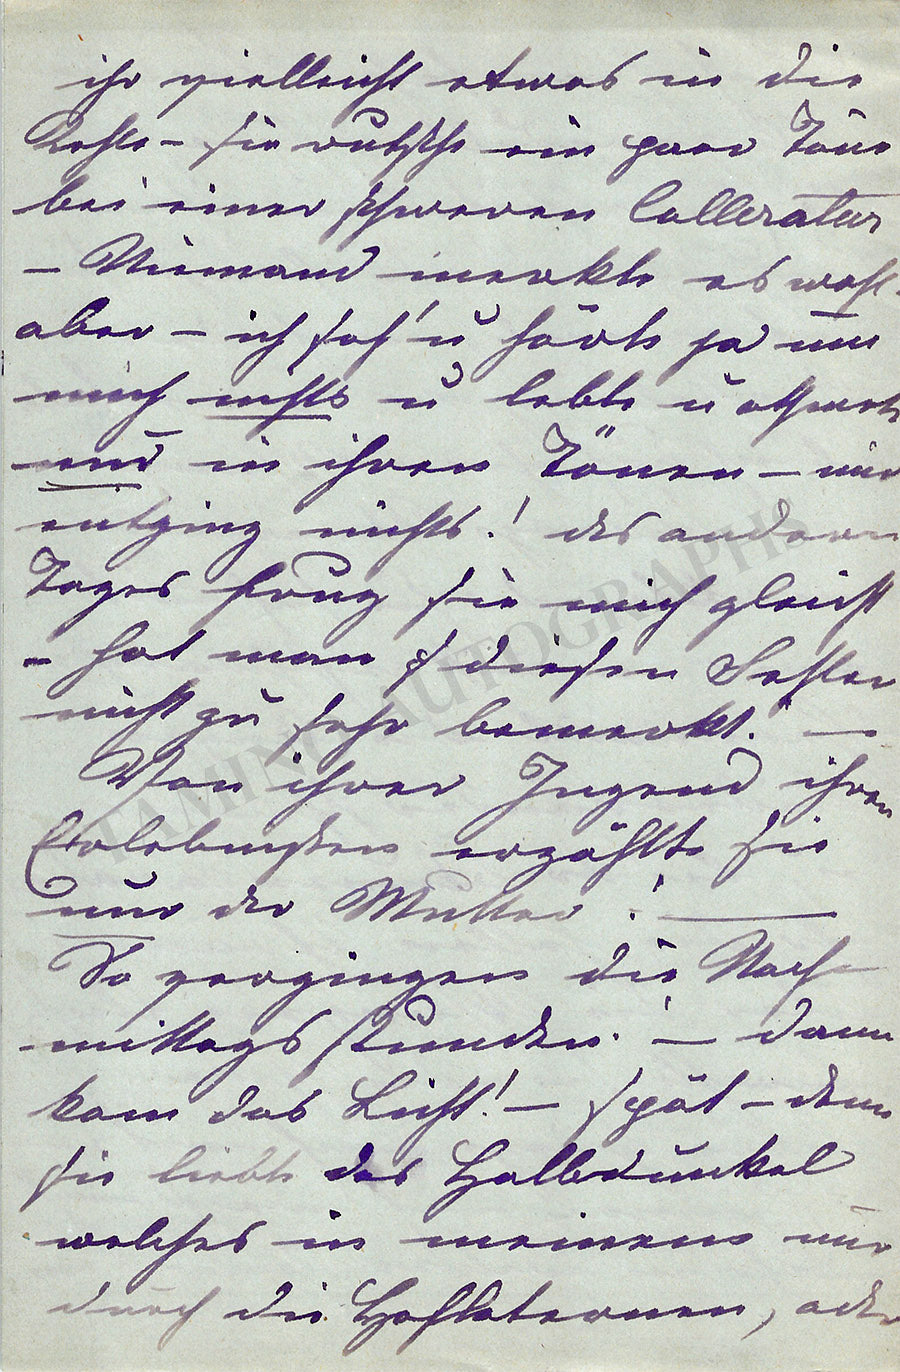 ihr vielleicht etwas in die
Kehle – sie rutschte ein paar Töne
bei einer schweren Colleratur
– Niemand merkte es wohl.
aber – ich sah' u hörte ja nur
u lebte u athmete
nur in ihren Tönen – mir
entging nichts! des andern
Tages frug sie mich gleich
– hat man diesen Fehler
nicht zu sehr bemerkt." —
Von ihrer Jugend ihren
Erlebnissen erzählte sie
nur der Mutter! —
So vergingen die Nach
mittags stunden. ! — dann
kam das Licht! – spät – denn
sie liebte das Halbdunkel
welches in meinem nur
durch die Hoflaternen, oder
TAMINO AUTOGRAPHS